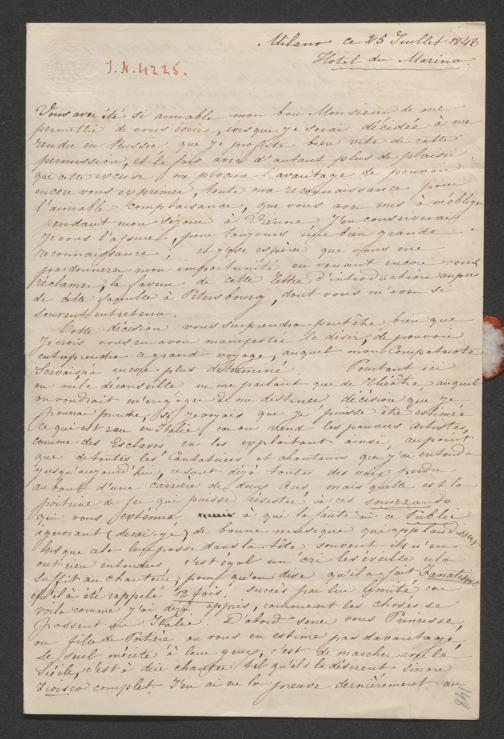 Milano ce 25 Juillet 1842
Hotel du Marino.
I.N. 4225.
Vous avez été si aimable mon bon Monsieur de me
permettre de vous écrire, lorsque je serai décidée à me
rendre en Russie que je profite bien vite de cette
permission, et le fais avec d'autant plus de plaisir
que cette excuse va procurer l'avantage de pouvoir
encore vous exprimer, toute ma reconnaissance pour
l'aimable complaisance, que vous avez mis à m'obliger
pendant mon séjour à Vienne J'en conserverai
je vous l'assure, pour toujours une bien grande
reconnaissance; et j'ose espérer que vous me
pardonnerez mon importunité en venant encore vous
réclamer, la faveur de cette lettre d'introduction auprès
de cette famille à Petersbourg, dont vous m'avez si
souvent entretenu.
Cette décision vous surprendra peut être bien que
je crois vous en avoir manifestée le désir, de pouvoir
entreprendre ce grand voyage, auquel mon Compatriote
Servais m'a encore plus déterminé Pourtant ici
on me le déconseille ne me parlant que de Théâtre auquel
on voudrait m'engager de me destiner, décision que je
pourrai prendre, si je voyais que je puisse être estimée
ce qui est rare en Italie car on vend les pauvres Artistes,
comme des Esclaves en les exploitant ainsi, au point
que de toutes les Cantatrices et chanteurs que j'ai entendu
jusqu'aujourd'hui, ce sont déjà toutes des voix perdue
au bout d'une carrière de deux Ans, mais quelle est la
poitrine de fer qui puisse résistée à ces smorzando
qui vous exténue à qui la faute à ce Publie
ignorant (dirai-je) de bonne musique qui applaudissent
lorsque cela leur passe dans la tête; souvent ils n'en
ont rien entendus c'est égal un cri les éveille cela
suffit au chanteur, pour qu'on dise qu'il a fait Fanatisme
qu'il a été rappelé 12 fois, succès par lui imité car
voilà comme j'ai déjà appris, comment les choses se
passent en Italie. D'abord senez vous Princesse,
ou fille de Portière on vous en estime pas davantage,
le seul mérite à leur yeux, c'est de marcher avec le
Siècle, c'est à dire chanter tel qu'ils le désirent sinon
Fiasco complet. J'en ai eu la preuve dernièrement au
148